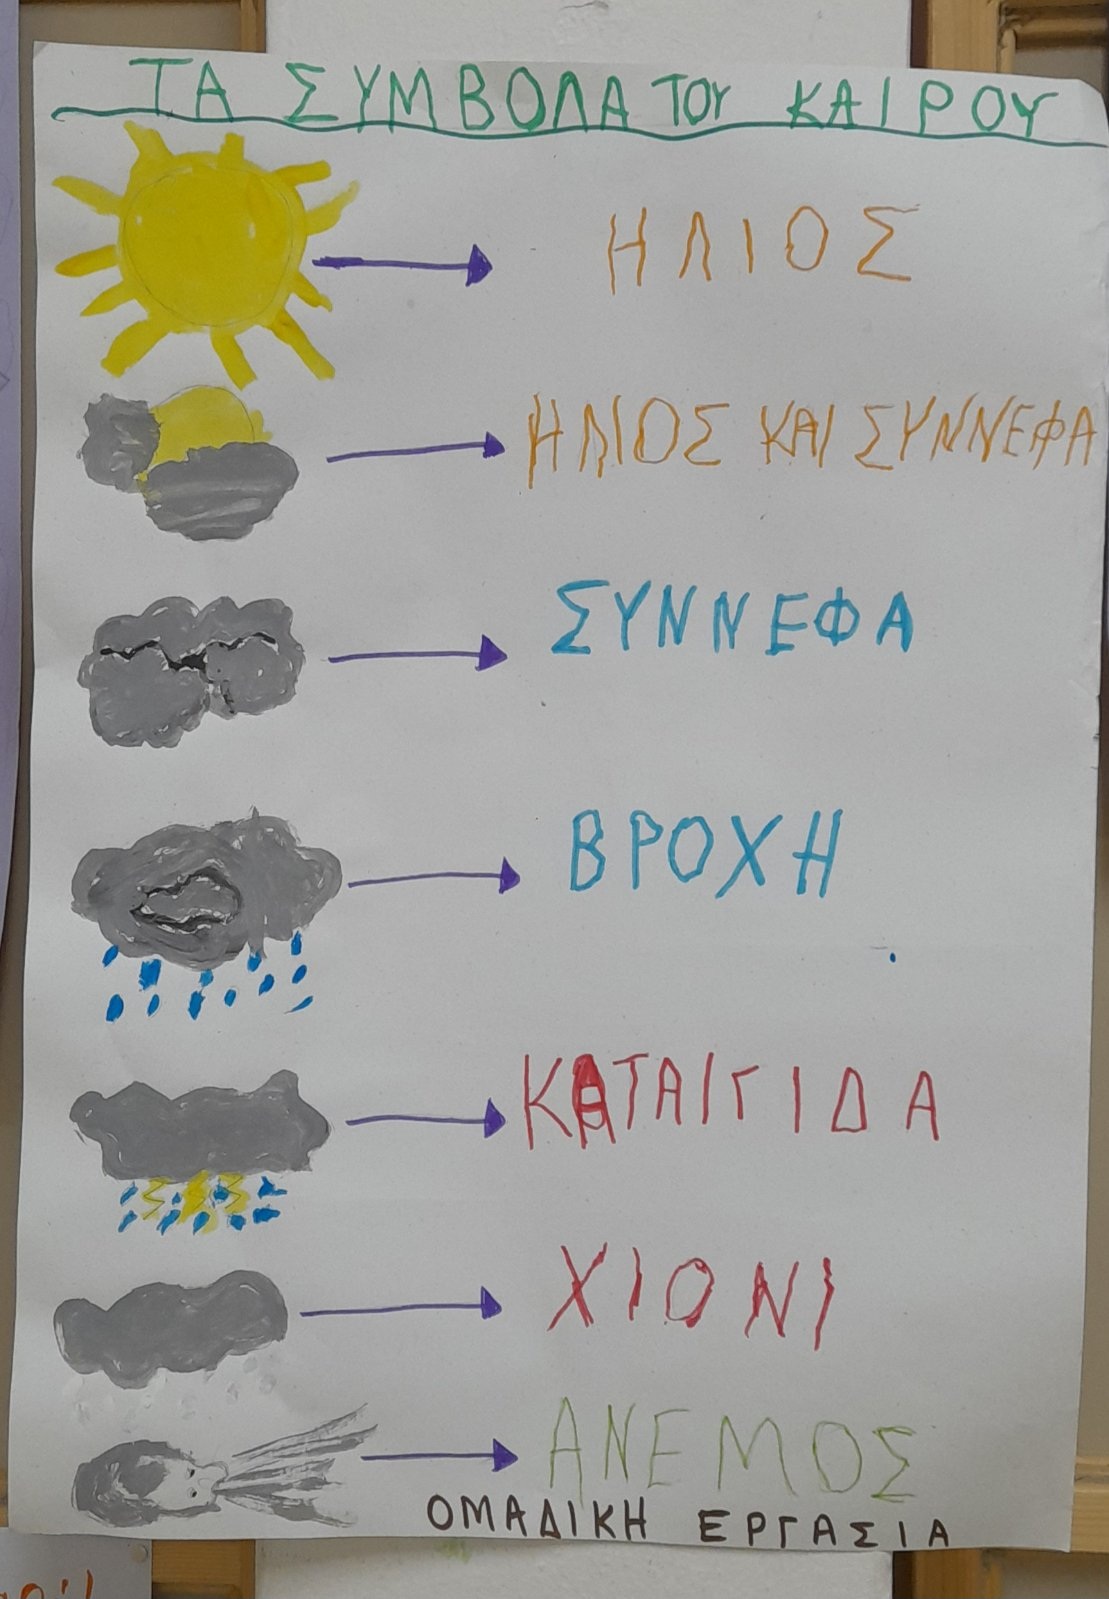 ΤΑ ΣΥΜΒΟΛΑ ΤΟΥ ΚΑΙΡΟΥ
ΗΛΙΟΣ
ΗΛΙΟΣ ΚΑΙ ΣΥΝΝΕΦΑ
ΣΥΝΝΕΦΑ
ΒΡΟΧΗ
ΚΑΤΑΙΓΙΔΑ
ΧΙΟΝΙ
ΑΝΕΜΟΣ
ΟΜΑΔΙΚΗ ΕΡΓΑΣΙΑ